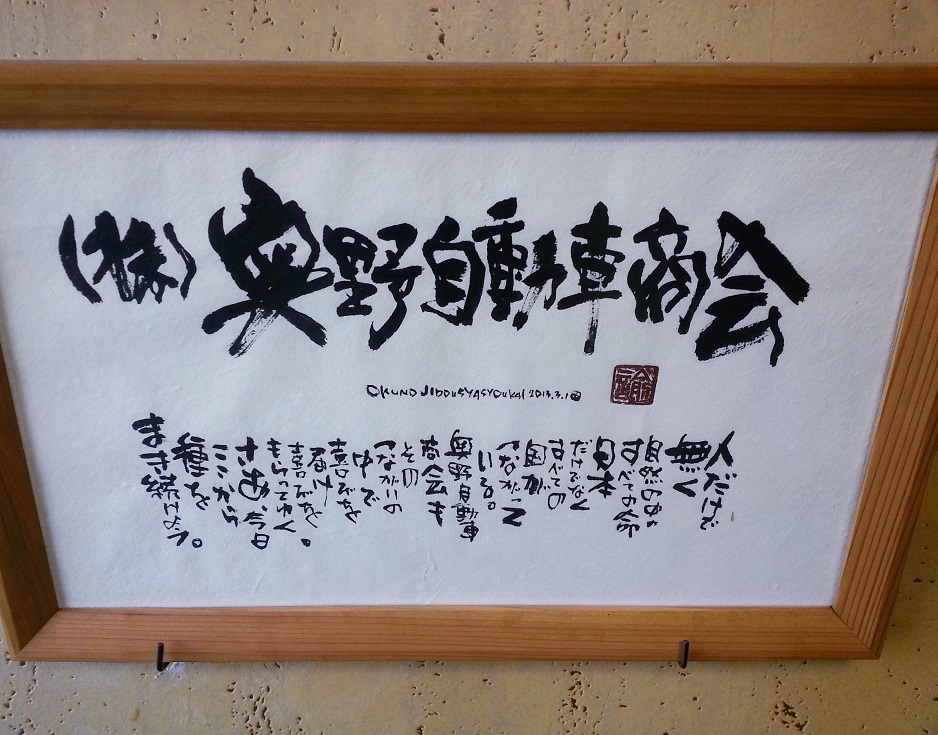 (株)奥野自動車商会
OKUNO JIDOUSYASYOUKAI 2013.3.1
人だけで
無く
自然の中の
すべての命
日本
だけでなく
すべての
国が
つながって
いる。
奥野自動車
商会も
その
つながりの
中で
喜びを
届け
喜びを
もらってゆく。
さあ、今日
ここから
種を
まき続けよう。